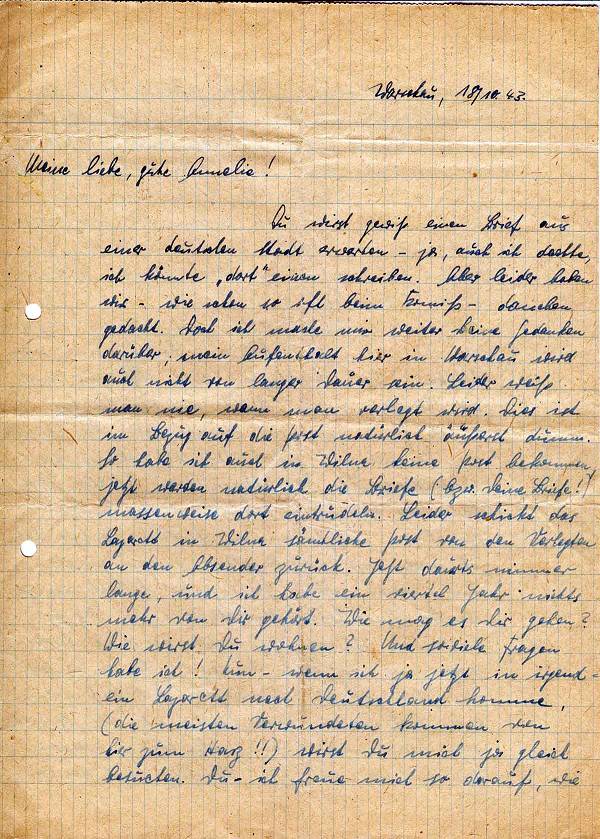 Warschau, 18/10.43.
Meine liebe, gute Annelie!
Du wirst gewiß einen Brief aus
einer deutschen Stadt erwarten – ja, auch ich dachte,
ich könnte „dort" einen schreiben. Aber leider haben
wir – wie schon so oft beim Kommiß – daneben
gedacht. Doch ich mache mir weiter keine Gedanken
darüber, mein Aufenthalt hier in Warschau wird
auch nicht von langer Dauer sein. Leider weiß
man nie, wann man verlegt wird. Dies ist
im Bezug auf die Post natürlich äußerst dumm.
So habe ich auch in Wilna keine Post bekommen,
jetzt werden natürlich die Briefe (bzw. Deine Briefe!)
massenweise dort eintrudeln. Leider schickt das
Lazarett in Wilna sämtliche Post von den Verlegten
an den Absender zurück. Jetzt dauerts nimmer
lange, und ich habe ein viertel Jahr nichts
mehr von Dir gehört. Wie mag es Dir gehen?
Wie wirst Du wohnen? Und soviele Fragen
habe ich! Nun – wenn ich ja jetzt in irgend=
ein Lazarett nach Deutschland komme,
(die meisten Verwundeten kommen von
hier zum Harz!!) wirst Du mich ja gleich
besuchen. Du – ich freue mich so darauf, wie